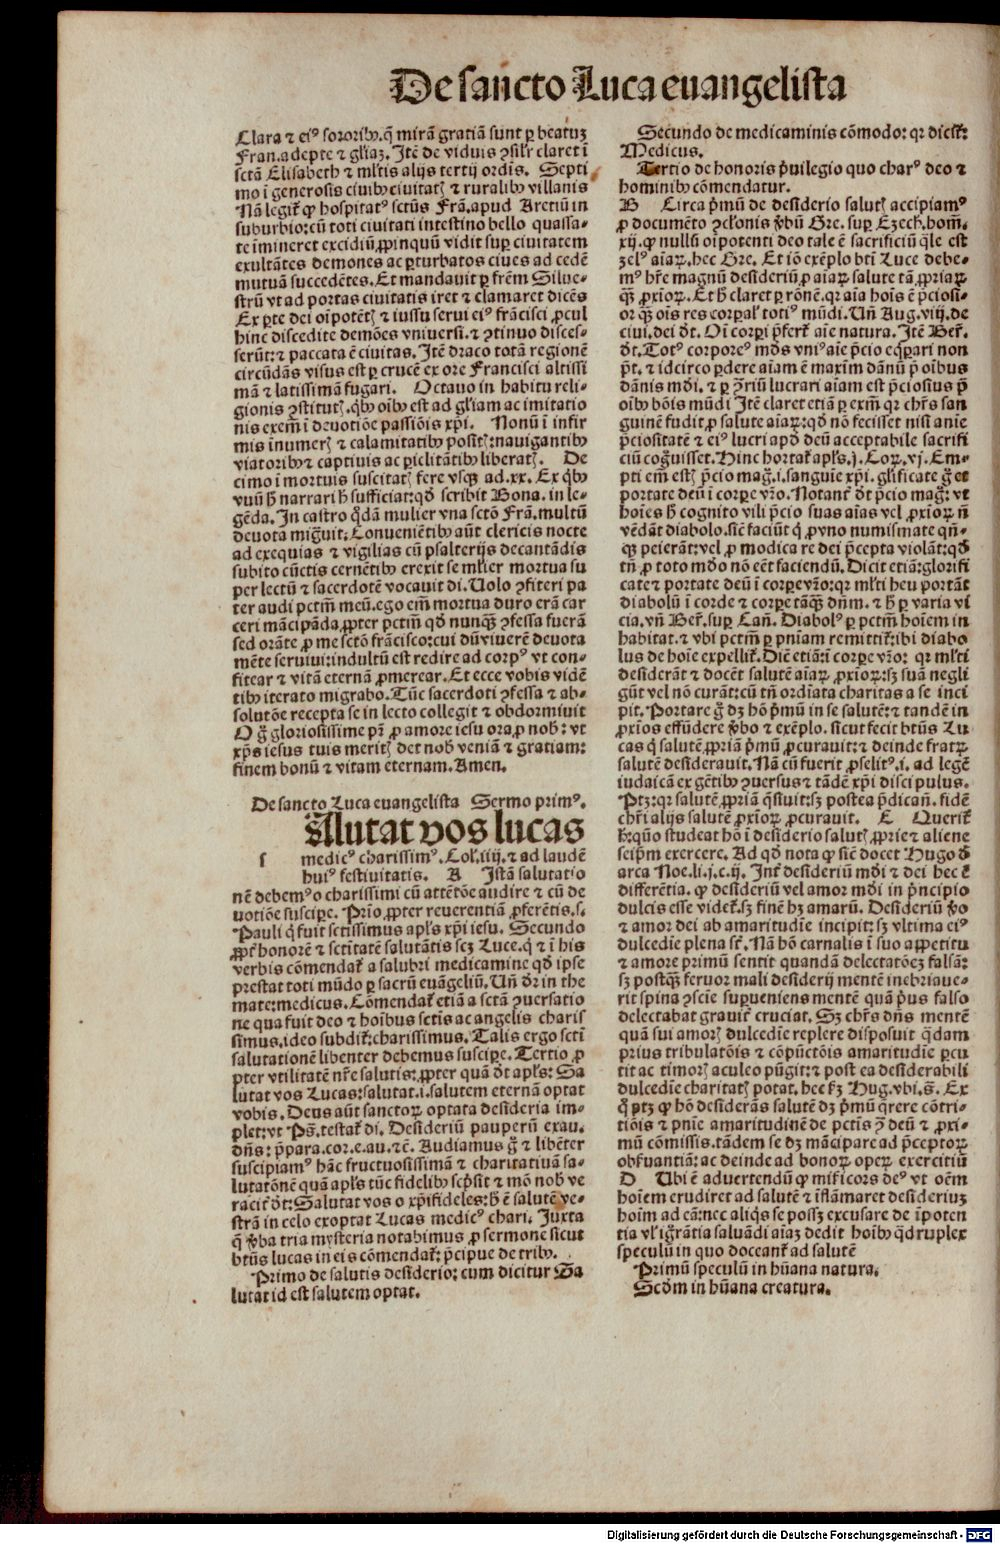 De sancto Luca euangelista
Clara ⁊ eiꝰ sororibꝰ. q̃ mirã gratiã sunt ꝑ beatuꝫ
Fran. adepte ⁊ gl̃iaꝫ. Itẽ de viduis ꝯsil̃r claret ĩ
sctã Elisabeth ⁊ ml̃tis alijs tertij ordĩs. Septi
mo ĩ generosis ciuibꝰ ciuitatꝭ ⁊ ruralibꝰ villanis
Nã legit᷑ ꝙ hospitatꝰ sctũs Frã. apud Aretiũ in
suburbio: cũ toti ciuitati intestino bello quassa⸗
te ĩmineret excidiũ, ꝓpinquũ vidit suꝑ ciuitatem
exultãtes demones ac ꝑturbatos ciues ad cedẽ
mutuã succedẽtes. Et mandauit ꝑ frẽm Silue⸗
strũ vt ad portas ciuitatis iret ⁊ clamaret dicẽs
Ex ꝑte dei oĩpotẽtꝭ ⁊ iussu serui eiꝰ frãcisci ꝓcul
hinc discedite demões vniuersi. ⁊ ꝯtinuo disces⸗
serũt: ⁊ paccata ẽ ciuitas. Itẽ draco totã regionẽ
circũdãs visus est ꝑ crucẽ ex ore Francisci altissi
mã ⁊ latissimã fugari. Octauo in habitu reli⸗
gionis ꝯstitutꝭ. qͥbꝰ oĩbꝰ est ad gl̃iam ac imitatio
nis exem̃ ĩ deuotiõe passiõis xp̃i. Nonũ ĩ infir
mis ĩnumerꝭ ⁊ calamitatibꝰ positꝭ: nauigantibꝰ
viatoribꝰ ⁊ captiuis ac ꝑiclitãtibꝰ liberatꝭ. De
cimo ĩ mortuis suscitatꝭ fere vsqꝫ ad. xx. Ex qͥbꝰ
vnũ hͦ narrari hͦ sufficiat: qd̃ scribit Bona. in le⸗
gẽda. In castro qͦdã mulier vna sctõ Frã. multũ
deuota migͣuit: Conuenientibꝰ aũt clericis nocte
ad exequias ⁊ vigilias cũ psalterijs decantãdis
subito cũctis cernẽtibꝰ erexit se ml̃ier mortua su
per lectũ ⁊ sacerdotẽ vocauit di. Uolo ꝯfiteri pa
ter audi pctm̃ meũ. ego em̃ mortua duro erã car
ceri mãcipãda, ꝓpter pctm̃ qd̃ nunqͣꝫ ꝯfessa fuerã
sed orãte ꝓ me sctõ frãcisco: cui dũ viuerẽ deuota
mẽte seruiui: indultũ est redire ad corpꝰ vt con⸗
fitear ⁊ vitã eternã ꝓmerear. Et ecce vobis vidẽ
tibꝰ iterato migrabo. Tũc sacerdoti ꝯfessa ⁊ ab⸗
solutõe recepta se in lecto collegit ⁊ obdormiuit
O gͦ gloriosissime pr̃ ꝓ amore iesu ora, ꝓ nobꝭ: vt
xp̃s iesus tuis meritꝭ det nobꝭ veniã ⁊ gratiam:
finem bonũ ⁊ vitam eternam. Amen.
De sancto Luca euangelista Sermo primꝰ.
Alutat vos lucas
s medicꝰ charissimꝰ. Col̃. iiij. ⁊ ad laudẽ
huiꝰ festiuitatis. A Istã salutatio
nẽ debemꝰ o charissimi cũ attẽtõe audire ⁊ cũ de
uotiõe suscipe. Prĩo, ꝓpter reuerentiã ꝓferẽtis. s.
Pauli qͥ fuit sctissimus apl̃s xp̃i iesu. Secundo
ꝓpt᷑ honorẽ ⁊ sctĩtatẽ salutãtis scꝫ Luce. qͥ ⁊ ĩ his
verbis cõmendat᷑ a salubri medicamine qd̃ ipse
prestat toti mũdo ꝑ sacrũ euãgeliũ. Uñ dr̃ in the
mate: medicus. Cõmendat᷑ etiã a sctã ꝯuersatio
ne qua fuit deo ⁊ hoĩbus sctis ac angelis charis
simus, ideo subdit᷑: charissimus. Talis ergo sctĩ
salutationẽ libenter debemus suscipe. Tertio ꝓ
pter vtilitatẽ nr̃e salutis: ꝓpter quã dt̃ apl̃s: Sa
lutat vos Lucas: salutat. i. salutem eternã optat
vobis. Deus aũt sanctoꝝ optata desideria im⸗
plet: vt Ps̃. testat᷑ di. Desideriũ pauperũ exau.
dñs: p̃para. cor. e. au. tẽ. Audiamus gͦ ⁊ libẽter
suscipiamꝰ hãc fructuosissimã ⁊ charitatiuã sa⸗
lutatõnẽ quã apl̃s tũc fidelibꝰ scp̃sit ⁊ mõ nobꝭ ve
racit᷑ dt̃: Salutat vos o xp̃ifideles: hͦ ẽ salutẽ ve⸗
strã in celo exoptat Lucas medicꝰ chari. Juxta
qͣ v̾ba tria mysteria notabimus ꝓ sermone sicut
btũs lucas in eis cõmendat᷑: p̃cipue de tribꝰ.
Primo de salutis desiderio: cum dicitur Sa
lutat id est salutem optat.
Secundo de medicaminis cõmodo: qr dicit᷑:
Medicus.
Tertio de honoris p̃uilegio quo charꝰ deo ⁊
hominibꝰ cõmendatur.
B Circa p̃mũ de desiderio salutꝭ accipiamꝰ
ꝓ documẽto ꝯcl̃onis v̾bũ Gre. suꝑ Ezech. hom̃.
xij. ꝙ nullũ oĩpotenti deo tale ẽ sacrificiũ qͣle est
zelꝰ aĩaꝝ. hec Gre. Et iõ exẽplo btĩ Luce debe⸗
mꝰ hr̃e magnũ desideriũ ꝓ aĩaꝝ salute tã, ꝓpriaꝝ
qͣꝫ ꝓxĩoꝝ. Et hͦ claret ꝑ rõnẽ. qr aĩa hoĩs ẽ p̃ciosi⸗
or qͣꝫ oĩs res corꝑal̃ totiꝰ mũdi. Uñ Aug. viij. de
ciui. dei dt̃. Oĩ corpi p̃fert᷑ aĩe natura. Itẽ Ber̃.
dt̃. Totꝰ corporeꝰ mũds vniꝰ aĩe p̃cio eq̃pari non
p̃t. ⁊ idcirco ꝑdere aĩam ẽ maxim̃ dãnũ p̃ oĩbus
dãnis mũdi. ⁊ ꝑ ꝯriũ lucrari aĩam est p̃ciosius p̃
oĩbꝰ bõis mũdi Itẽ claret etiã ꝑ exm̃ qr chr̃s san
guinẽ fudit ꝓ salute aĩaꝝ: qd̃ nõ fecisset nisi anie
p̃ciositatẽ ⁊ eiꝰ lucri apd̃ deũ acceptabile sacrifi
ciũ cogͦuisset. Hinc hortat᷑ apl̃s. j. Coꝝ. vj. Em⸗
pti em̃ estꝭ p̃cio mag̃. i. sanguĩe xp̃i. gl̃ificate gͦ et
portate deũ ĩ corꝑe vr̃o. Notant᷑ dt̃ p̃cio mag̃: vt
hoĩes hͦ cognito vili p̃cio suas aĩas vel ꝓxĩoꝝ ñ
vẽdãt diabolo. siẽ faciũt qͥ ꝓ vno numismate qñ⸗
qꝫ peierãt: vel ꝓ modica re dei p̃cepta violãt: qd̃
tñ ꝓ toto mũdo nõ eẽt faciendũ. Dicit etiã: glorifi
cate ⁊ portate deũ ĩ corꝑe vr̃o: qr ml̃ti heu portãt
diabolũ ĩ corde ⁊ corꝑe tãqͣꝫ dñm. ⁊ hͦ ꝑ varia vi
cia. vñ Ber̃. suꝑ Cañ. Diabolꝰ ꝑ pctm̃ hoĩem in
habitat. ⁊ vbi pctm̃ ꝑ pniam remittit᷑: ibi diabo
lus de hoĩe expellit᷑. Diẽ etiã: ĩ corꝑe vr̃o: qr ml̃ti
desiderãt ⁊ docẽt salutẽ aĩaꝝ ꝓxĩoꝝ: sꝫ suã negli
gũt vel nõ curãt: cũ tñ ordĩata charitas a se inci
pit. Portare gͦ dꝫ hõ p̃mũ in se salutẽ: ⁊ tandẽ in
ꝓxĩos effũdere v̾bo ⁊ exẽplo. sicut fecit btũs Lu
cas qͥ salutẽ, ꝓpriã p̃mũ ꝓcurauit: ⁊ deinde fratꝝ
salutẽ desiderauit. Nã cũ fuerit ꝓselitꝰ. i. ad legẽ
iudaicã ex gẽtibꝰ ꝯuersus ⁊ tãdẽ xp̃i discipulus.
Ptꝫ: qr salutẽ, ꝓpriã qͣsiuit: sꝫ postea p̃dicañ. fidẽ
chr̃i alijs salutẽ ꝓxĩoꝝ ꝓcurauit. C Querit᷑
hͨ: qͣũo studeat hõ ĩ desiderio salutꝭ ꝓprie ⁊ aliene
seip̃m exercere. Ad qd̃ nota ꝙ siẽ docet Hugo d̾
arca Noe. li. j. c. ij. Int᷑ desideriũ mũdi ⁊ dei hec ẽ
differẽtia. ꝙ desideriũ vel amor mũdi in p̃ncipio
dulcis esse videt᷑. sꝫ finẽ hꝫ amarũ. Desideriũ v̾o
⁊ amor dei ab amaritudĩe incipit: sꝫ vltima eiꝰ
dulcedĩe plena st̃. Nã hõ carnalis ĩ suo appetitu
⁊ amore primũ sentit quandã delectatõeꝫ falsã:
sꝫ postqͣꝫ feruor mali desiderij mentẽ inebriaue⸗
rit spina ꝯscĩe suꝑueniens mentẽ quã p̃us falso
delectabat grauit᷑ cruciat. Sꝫ chr̃s dñs mentẽ
quã sui amorꝭ dulcedĩe replere disposuit qͣdam
prius tribulatõis ⁊ cõpũctõis amaritudĩe ꝑcu
tit ac timorꝭ aculeo pũgit: ⁊ post ea desiderabili
dulcedĩe charitatꝭ potat. hec kꝫ Hug. vbi. s̃. Ex
qͦ ptꝫ ꝙ hõ desiderãs salutẽ dꝫ p̃mũ qͣrere cõtri⸗
tiõis ⁊ pnĩe amaritudinẽ de pctĩs ꝯ̃ deũ ⁊ ꝓxi⸗
mũ cõmissis. tãdem se dꝫ mãcipare ad p̃ceptoꝝ
obẽruantiã: ac deinde ad bonoꝝ opeꝝ exercitiũ
D Ubi ẽ aduertendũ ꝙ mit᷑icors deꝰ vt oẽm
hoĩem erudiret ad salutẽ ⁊ ĩflãmaret desideriuꝫ
hoĩm ad eã: nec aliqͥs se possꝫ excusare de ĩpoten
tia vl̃ igͦrãtia saluãdi aĩaꝫ dedit hoĩbꝰ qͣdruplex
speculũ in quo doceant᷑ ad salutẽ
Primũ speculũ in hũana natura.
Scd̃m in hũana creatura.
Digitalisierung gefördert durch die Deutsche Forschungsgemeinschaft - DFG